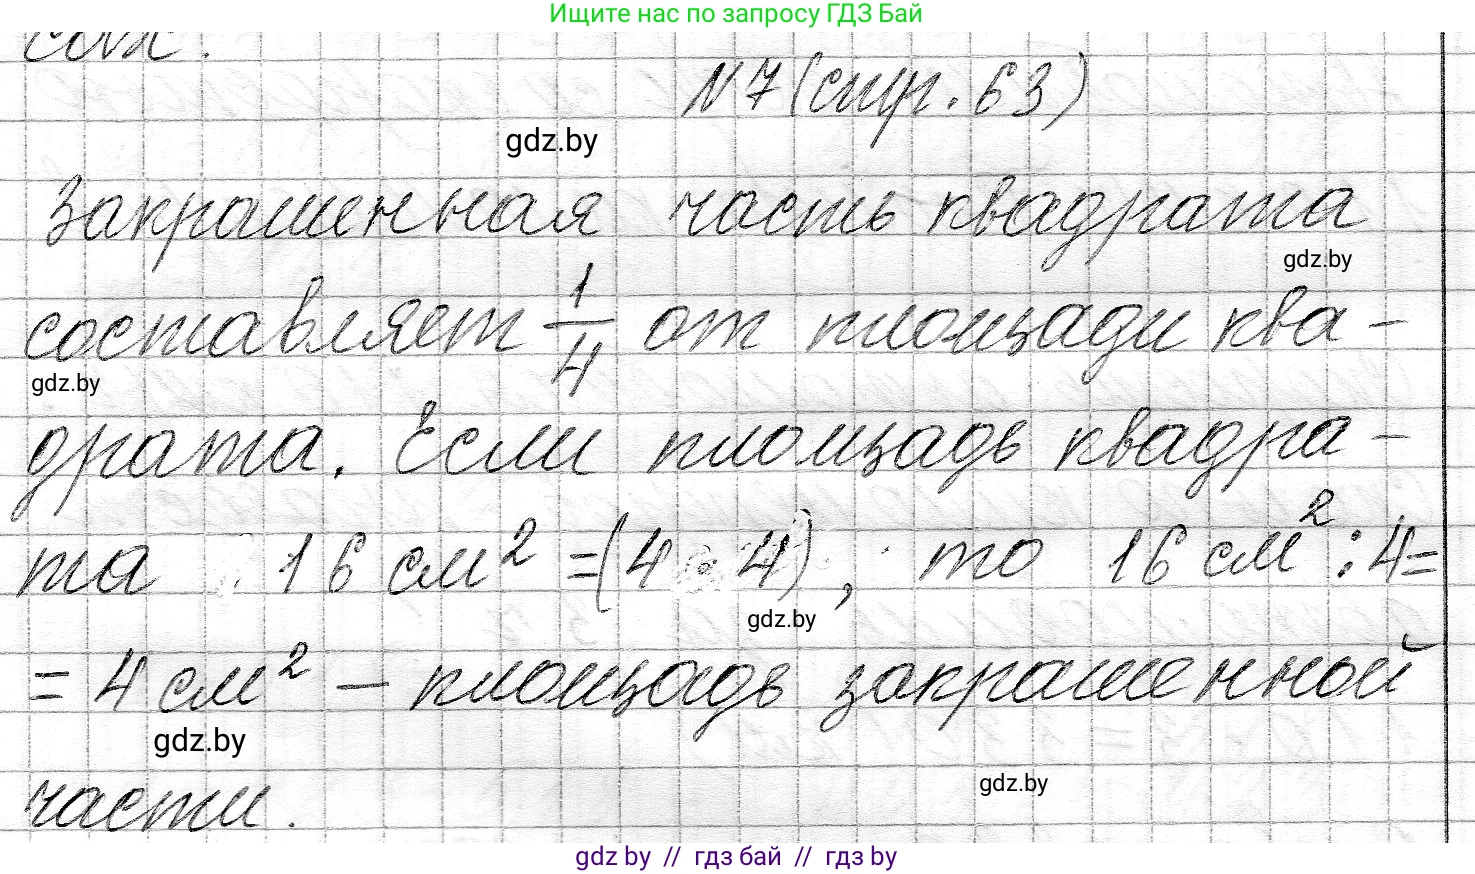 Ищите нас по запросу ГДЗ Бай
N 7 (стр. 63)
gdz.by
Закрашенная часть квадрата
gdz.by
составляет 1/4 от площади ква-
gdz.by
драта. Если площадь квадра-
та 16 см² =(4 · 4), то 16 см² : 4=
gdz.by
= 4 см² — площадь закрашенной
gdz.by
gdz.by
части.
gdz by // гдз бай // гдз by